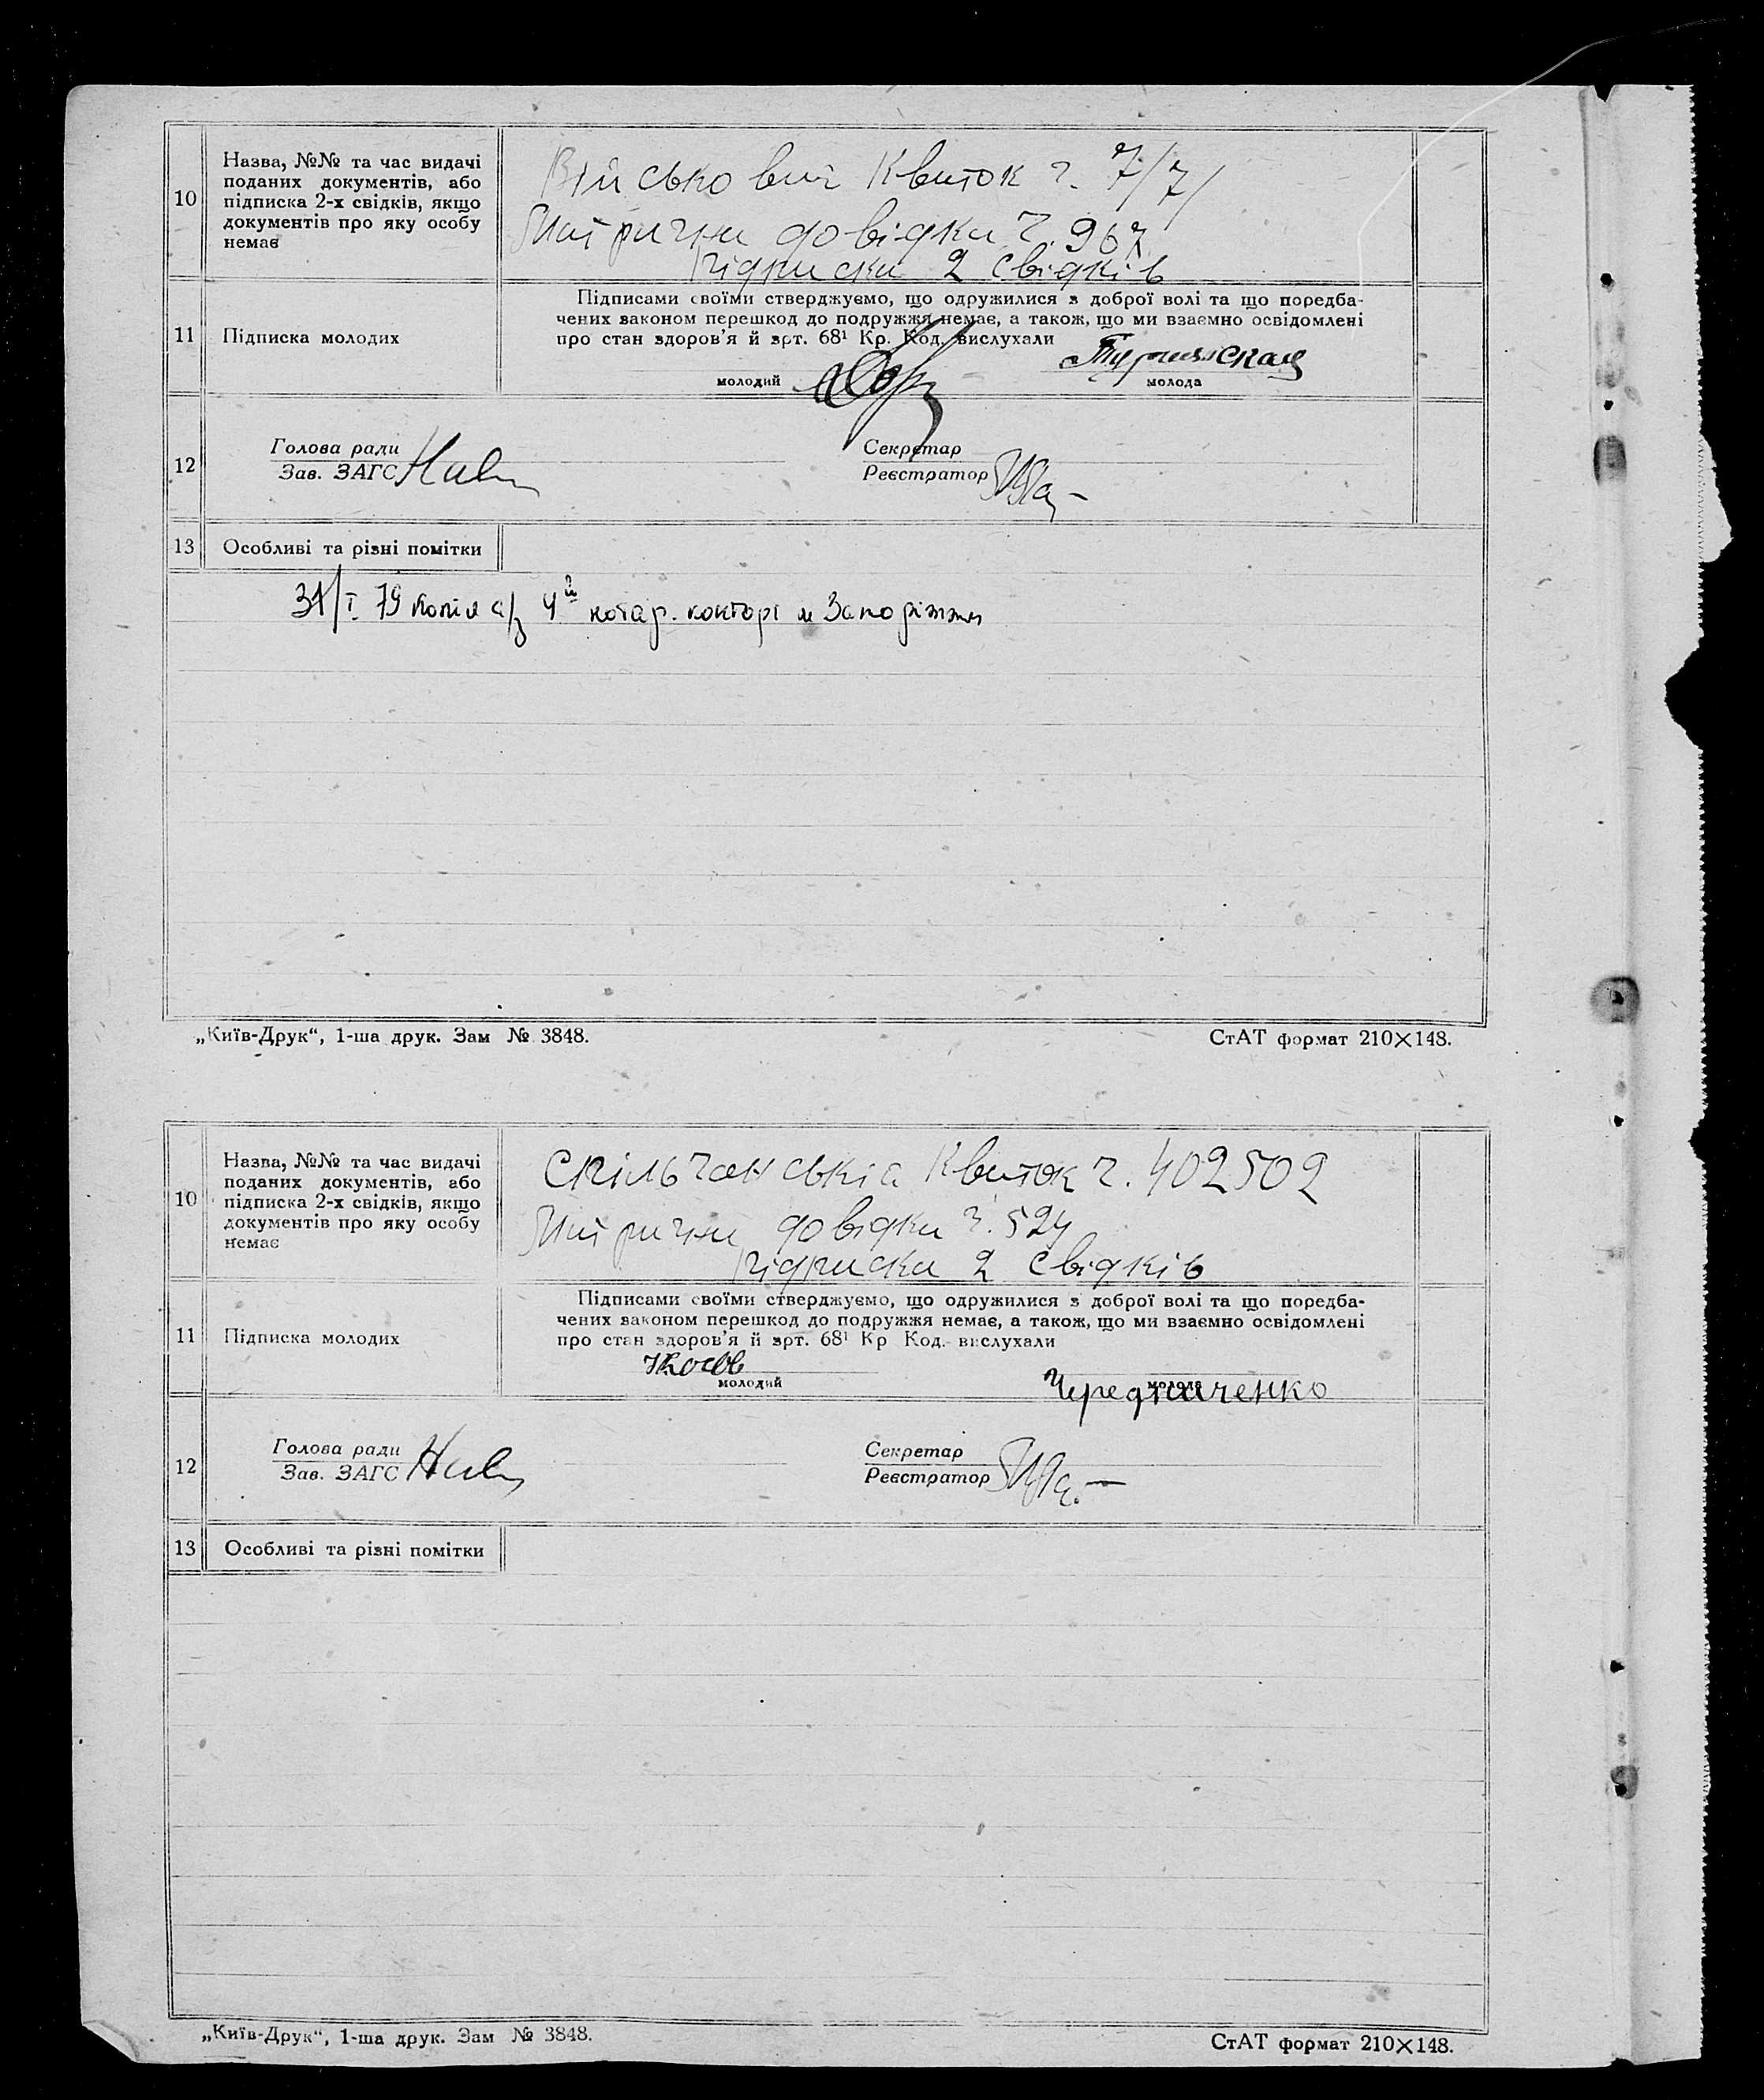 10
Назва, №№ та час видачі
поданих документів, або
підписка 2-х свідків, якщо
документів про яку особу
немає
Військовий Квиток ч. 7/7/
Митрични довідки ч. 967
підписки 2 свідків
11
Підписка молодих
Підписами своїми стверджуємо, що одружилися з доброї волі та що поредба-
чених законом перешкод до подружжя немає, а також, що ми взаємно освідомлені
про стан здоров'я й зрт. 68¹ Кр. Код. вислухали
молодий
молода
12
Голова ради
Зав. ЗАГС
Секретар
Реєстратор
13
Особливі та різні помітки
31/I 79 Копія а/з 4й нотар. конторі м Запоріжжя
„Київ-Друк“, 1-ша друк. Зам № 3848.
СтАТ формат 210×148.
10
Назва, №№ та час видачі
поданих документів, або
підписка 2-х свідків, якщо
документів про яку особу
немає
Квиток ч. 402502
Митрични довідки ч. 524
підписки 2 свідків
11
Підписка молодих
Підписами своїми стверджуємо, що одружилися з доброї волі та що поредба-
чених законом перешкод до подружжя немає, а також, що ми взаємно освідомлені
про стан здоров'я й зрт. 68¹ Кр Код. вислухали
молодий
молода
Чередниченко
12
Голова ради
Зав. ЗАГС
Секретар
Реєстратор
13
Особливі та різні помітки
„Київ-Друк“, 1-ша друк. Зам № 3848.
СтАТ формат 210×148.